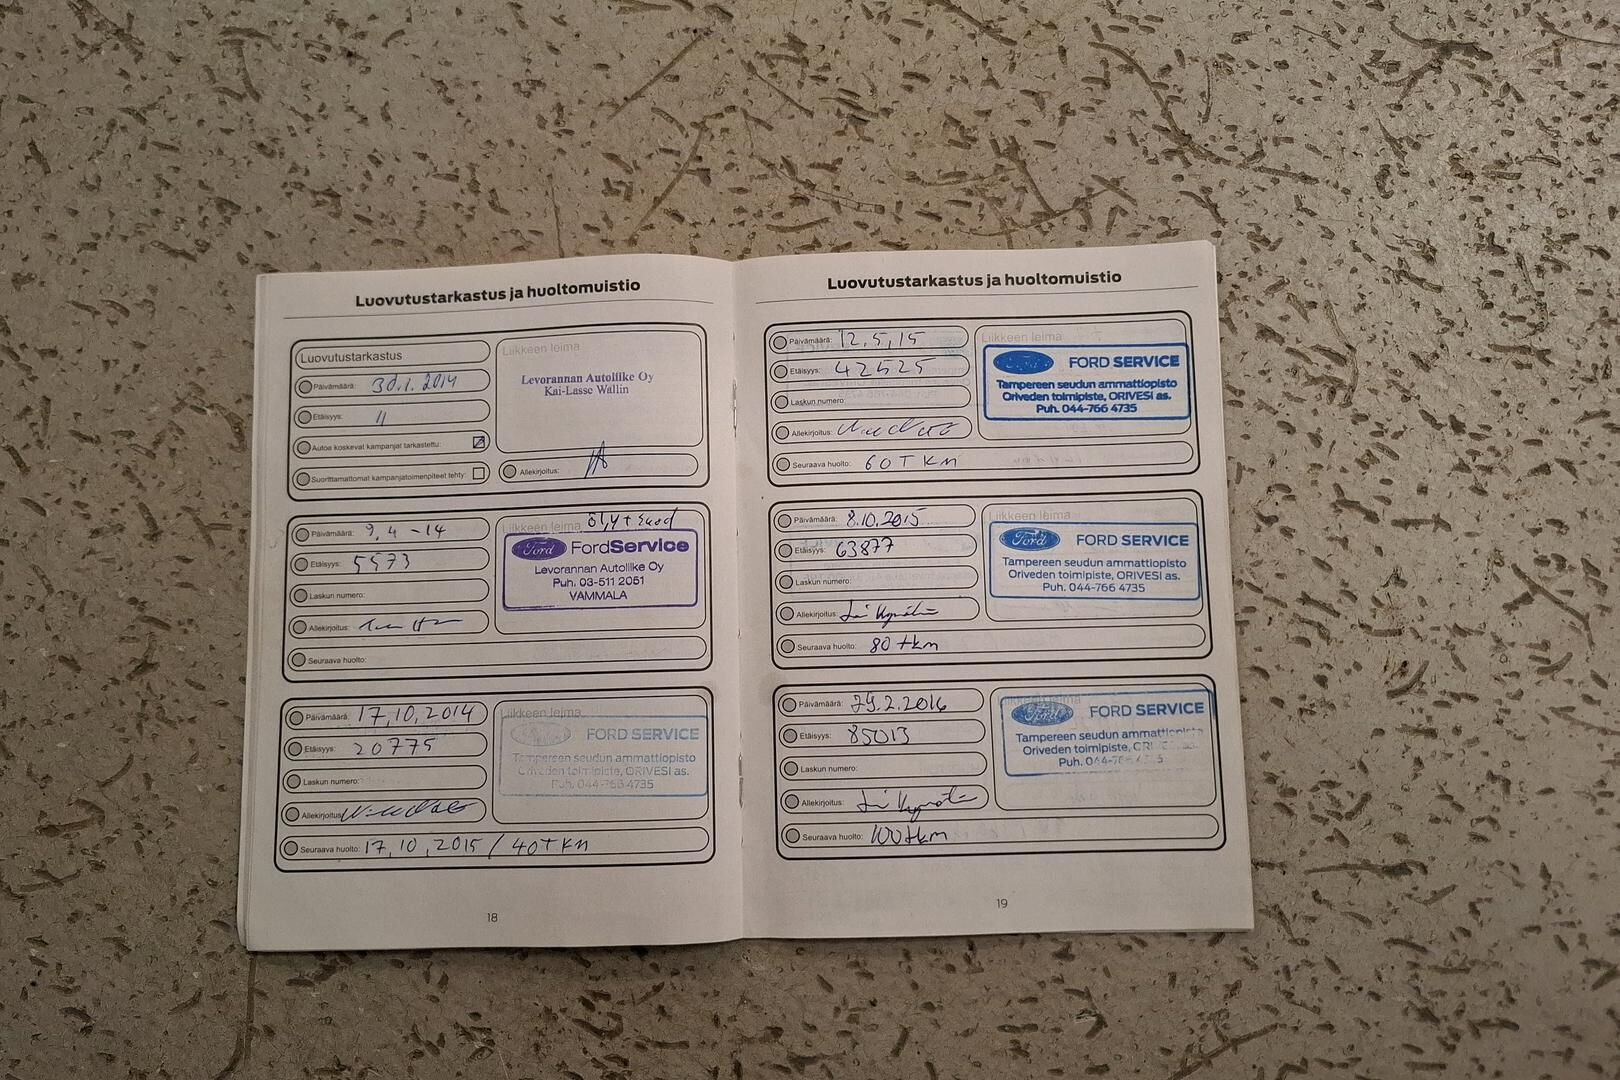 Luovutustarkastus ja huoltomuistio
Luovutustarkastus
Päivämäärä: 30.1.2014
Etäisyys: 11
Autoa koskevat kampanjat tarkastettu:
Suorittamattomat kampanjatoimenpiteet tehty:
Liikkeen leima
Levorannan Autoliike Oy
Kai-Lasse Wallin
Allekirjoitus:
Päivämäärä: 9,4 -14
Etäisyys: 5573
Laskun numero:
Allekirjoitus:
Seuraava huolto:
Liikkeen leima
Ford FordService
Levorannan Autoliike Oy
Puh. 03-511 2051
VAMMALA
Päivämäärä: 17,10,2014
Etäisyys: 20775
Laskun numero:
Allekirjoitus:
Seuraava huolto: 17,10,2015 / 40T KM
Liikkeen leima
Ford FORD SERVICE
Tampereen seudun ammattiopisto
Oriveden toimipiste, ORIVESI as.
Puh. 044-766 4735
18
Luovutustarkastus ja huoltomuistio
Päivämäärä: 12,5,15
Etäisyys: 42525
Laskun numero:
Allekirjoitus:
Seuraava huolto: 60T KM
Liikkeen leima
Ford FORD SERVICE
Tampereen seudun ammattiopisto
Oriveden toimipiste, ORIVESI as.
Puh. 044-766 4735
Päivämäärä: 8.10.2015
Etäisyys: 63877
Laskun numero:
Allekirjoitus:
Seuraava huolto: 80 tkm
Liikkeen leima
Ford FORD SERVICE
Tampereen seudun ammattiopisto
Oriveden toimipiste, ORIVESI as.
Puh. 044-766 4735
Päivämäärä: 29.2.2016
Etäisyys: 85013
Laskun numero:
Allekirjoitus:
Seuraava huolto: 100tkm
Liikkeen leima
Ford FORD SERVICE
Tampereen seudun ammattiopisto
Oriveden toimipiste, ORIVESI as.
Puh. 044-766 4735
19